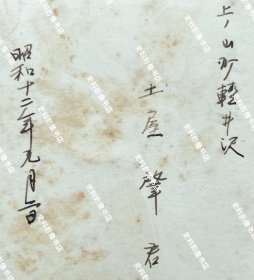 上ノ山町軽井沢
土屋肇君
昭和十二年元月二日